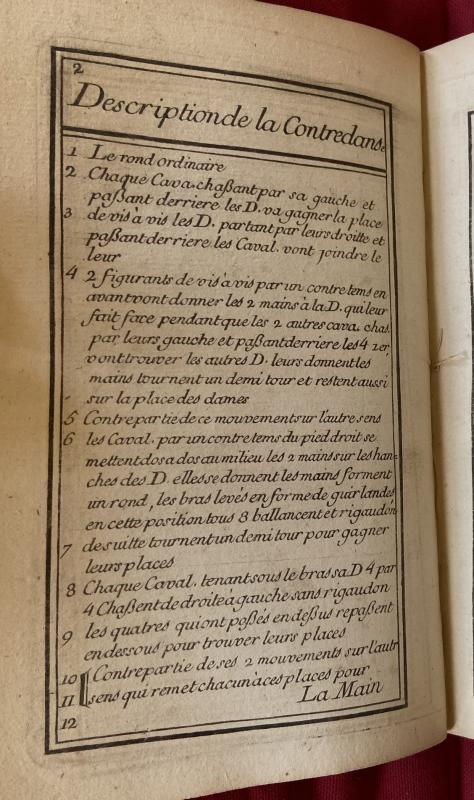 2
Description de la Contredanse
1 Le rond ordinaire
2 Chaque Cava. chaßant par sa gauche et
paßant derriere les D. va gagner la place
3 de vis à vis les D. partant par leurs droitte et
paßant derriere les Caval. vont joindre le
leur
4 2 figurants de vis à vis par un contretems en
avant vont donner les 2 mains à la D. qui leur
fait face pendant que les 2 autres cava. chas.
par leurs gauche et paßant derriere les 4 1er,
vont trouver les autres D. leurs donnent les
mains tournent un demi tour et restent aussi
sur la place des dames
5 Contrepartie de ce mouvement sur l'autre sens
6 les Caval. par un contretems du pied droit se
mettent dos a dos au milieu les 2 mains sur les han-
ches des D. elles se donnent les mains forment
un rond, les bras levés en forme de guirlandes
en cette position tous 8 ballancent et rigaudon
7 de suitte tournent un demi tour pour gagner
leurs places
8 Chaque Caval. tenant sous le bras sa D 4 par
4 Chaßent de droite à gauche sans rigaudon
9 les quatres qui ont paßés en deßus repaßent
en dessous pour trouver leurs places
10 Contrepartie de ses 2 mouvements sur l'autr
11 sens qui remet chacun à ces places pour
12 La Main